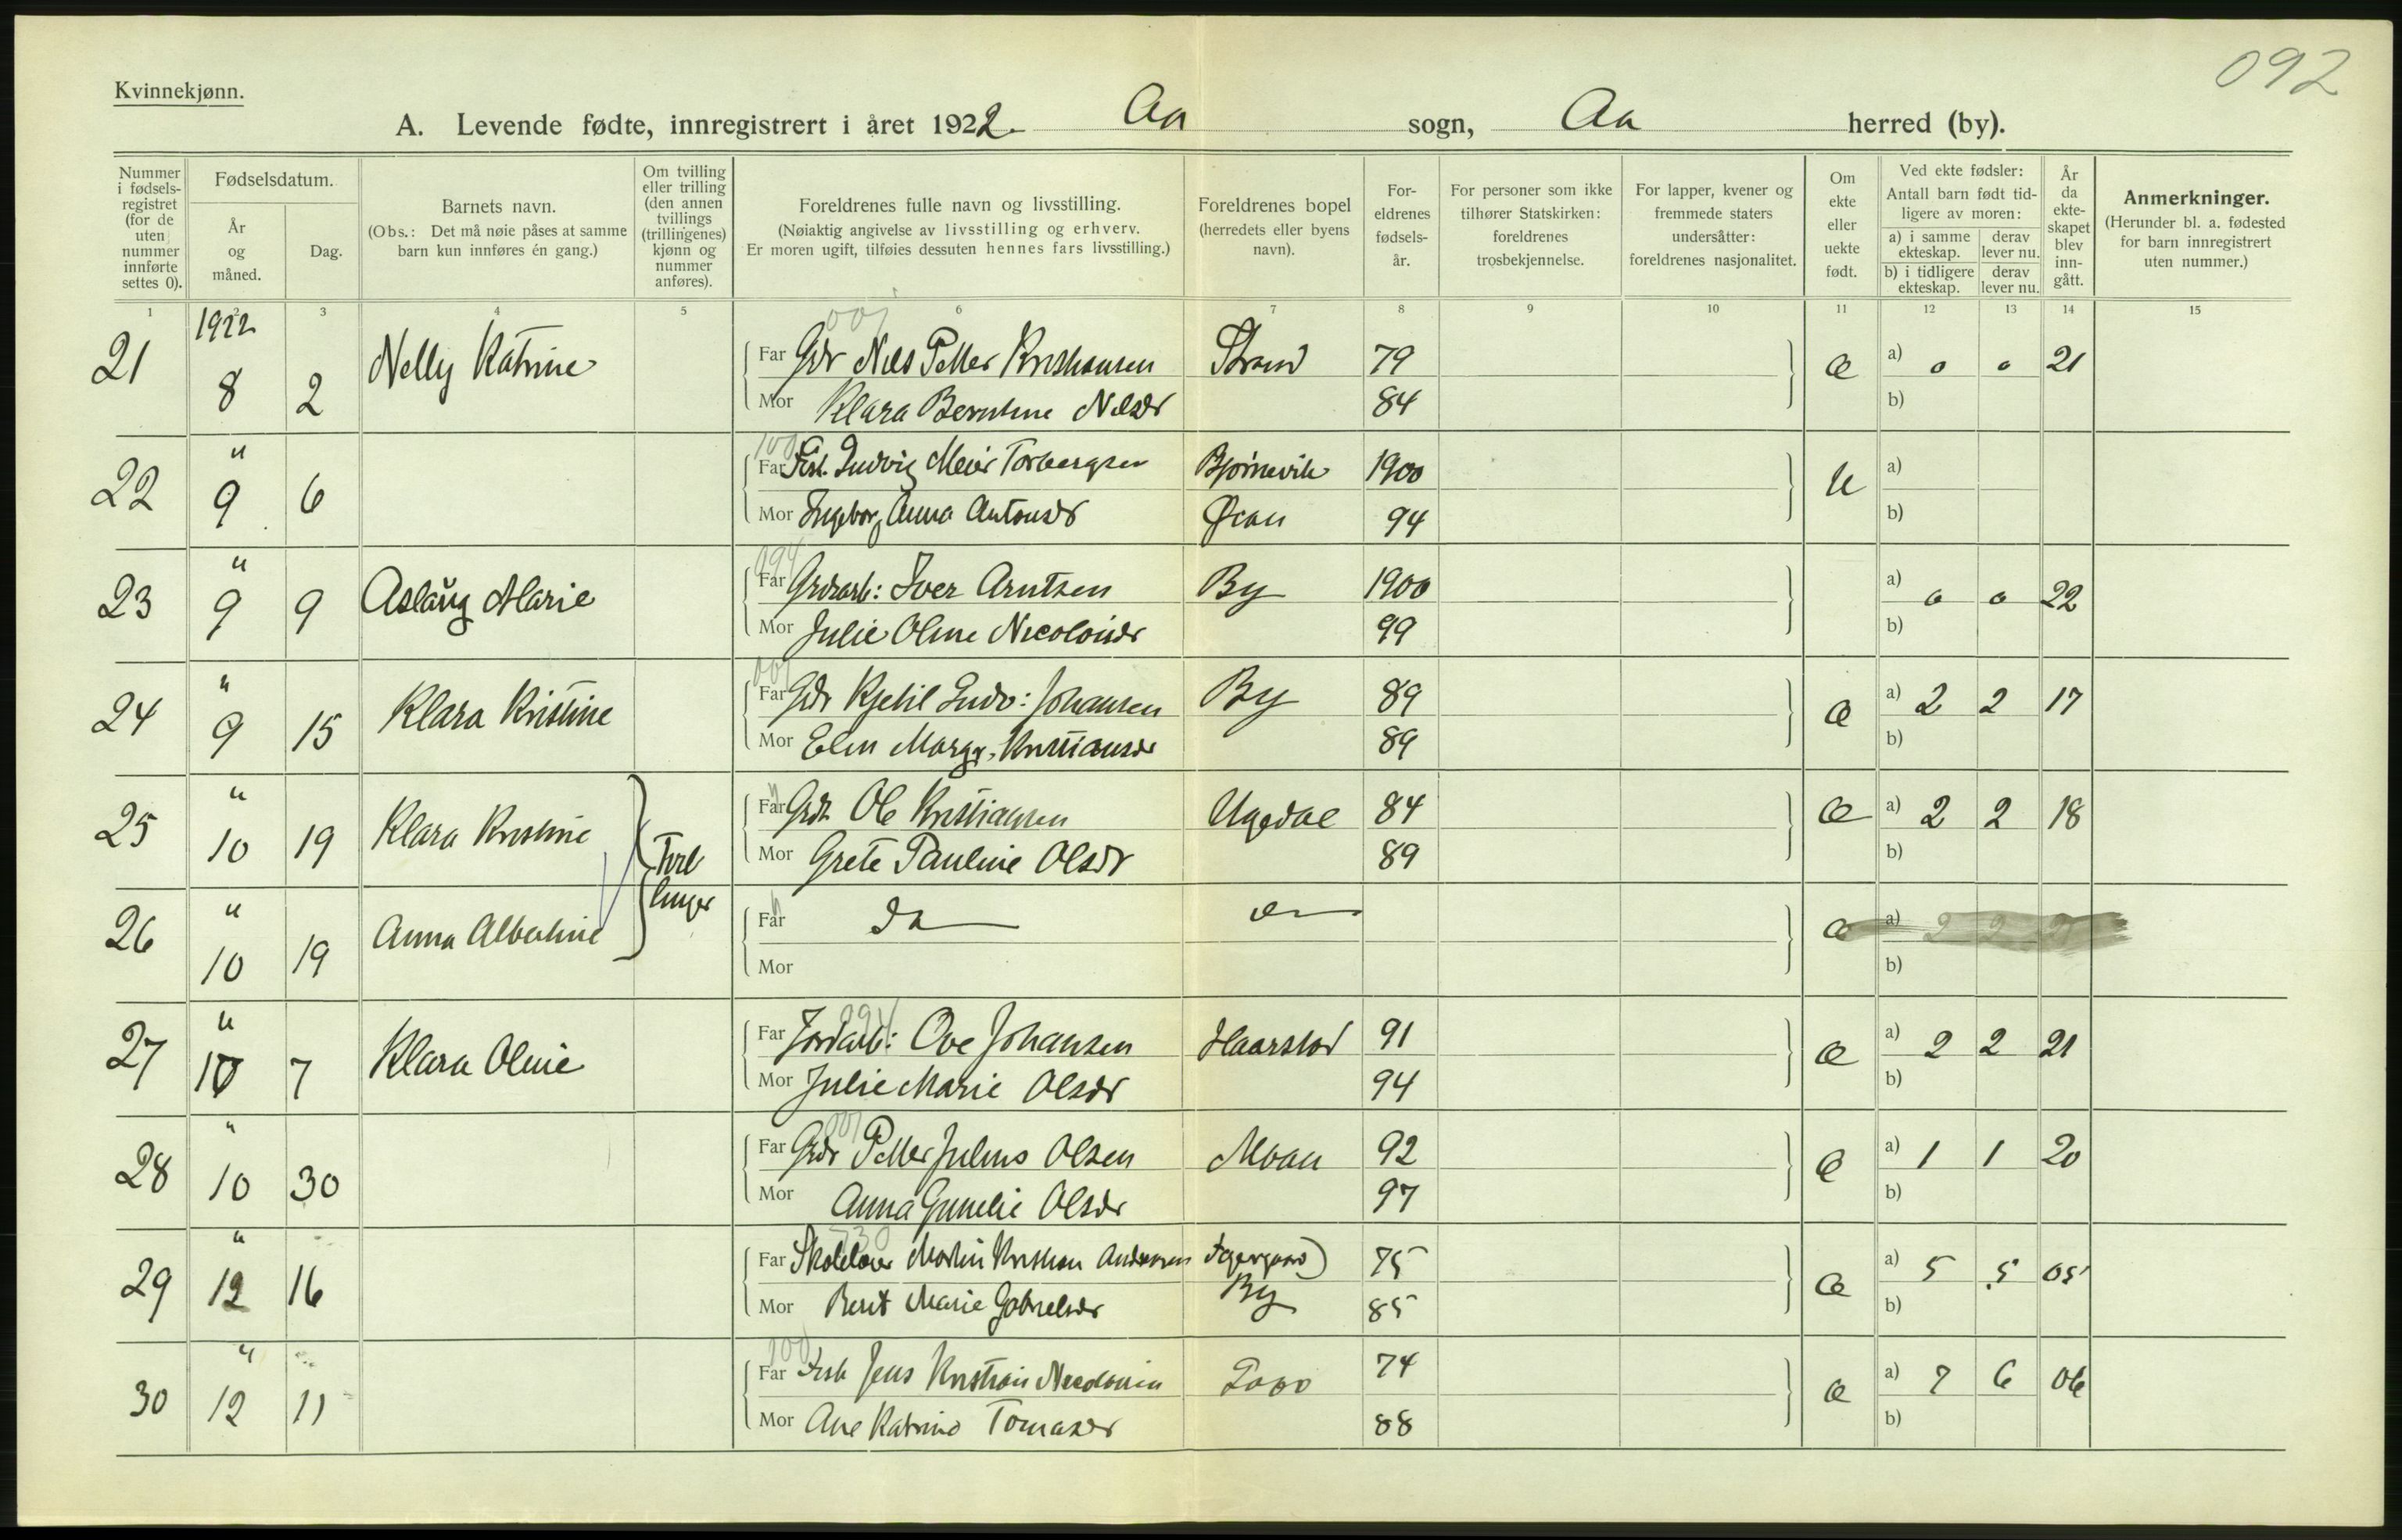 092
Kvinnekjønn.
A. Levende fødte, innregistrert i året 1922. Aa sogn, Aa herred (by).
Nummer i fødsels-registret (for de uten nummer innførte settes 0).
Fødselsdatum.
År og måned.
Dag.
Barnets navn.
(Obs.: Det må nøie påses at samme barn kun innføres én gang.)
Om tvilling eller trilling (den annen tvillings (trillingenes) kjønn og nummer anføres).
Foreldrenes fulle navn og livsstilling.
(Nøiaktig angivelse av livsstilling og erhverv.
Er moren ugift, tilføies dessuten hennes fars livsstilling.)
Foreldrenes bopel
(herredets eller byens navn).
For-eldrenes fødsels-år.
For personer som ikke tilhører Statskirken: foreldrenes trosbekjennelse.
For lapper, kvener og fremmede staters undersåtter: foreldrenes nasjonalitet.
Om ekte eller uekte født.
Ved ekte fødsler:
Antall barn født tid-ligere av moren:
a) i samme ekteskap. derav lever nu.
b) i tidligere ekteskap. derav lever nu.
År da ekte-skapet blev inn-gått.
Anmerkninger.
(Herunder bl. a. fødested for barn innregistrert uten nummer.)
1 2 3 4 5 6 7 8 9 10 11 12 13 14 15
1922 001
21 8 2 Nelly Katrine Far Gdr Nils Petter Kristiansen Strand 79 Æ a) 0 0 21
Mor Klara Berntine Nilsdr 84 b)
100
22 " 9 6 Far Fisk. Ludvig Meier Torbergsen Bjørnevik 1900 U a)
Mor Ingeborg Anna Antonsdr 94 b)
094
23 " 9 9 Aslaug Marie Far Grdrarb: Iver Arntsen By 1900 a) 0 0 22
Mor Julie Oline Nicolaisdr 99 b)
001
24 " 9 15 Klara Kristine Far Gdr Kjetil Ludv: Johansen By 89 Æ a) 2 2 17
Mor Elen Margr. Kristiansdr 89 b)
25 " 10 19 Klara Kristine Tvil Far Grdr Ole Kristiansen 84 Æ a) 2 2 18
Mor Grete Pauline Olsdr 89 b)
26 " 10 19 Anna Albertine linger Far Da Æ a) 2 2
Mor b)
27 " 10 7 Klara Oline Far Jordarb: Ove Johansen Haarstad 91 Æ a) 2 2 21
Mor Julie Marie Olsdr 94 b)
001
28 " 10 30 Far Grdr Petter Julius Olsen Moan 92 Æ a) 1 1 20
Mor Anna Gunelie Olsdr 97 b)
29 " 12 16 Far Skolelærer Martin Kristian Andersen 75 Æ a) 5 5 05
Mor Berit Marie Gabrielsdr By 85 b)
100
30 " 12 11 Far Fisk Jens Kristian Nicolaisen 74 Æ a) 7 6 06
Mor Ane Katrine Tomasdr 88 b)